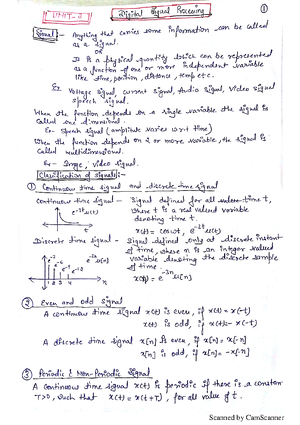 UNIT-1
Digital Signal Processing
①
Signal:- Anything that carries some information can be called
as a signal.
OR
It is a physical quantity which can be represented
as a function of one or more independent variable
like time, position, distance, temp etc.
Ex Voltage signal, current signal, Audio signal, Video signal
speech signal.
When the function depends on a single variable the signal is
called one dimensional.
Ex- Speech signal (amplitude varies w.r.t time)
When the function depends on 2 or more variable, the signal is
called multidimensional.
Ex- Image, Video signal.
Classification of signals:-
① Continuous time signal and discrete time signal
Continuous time signal - Signal defined for all
where t is a real valued variable
denoting time t.
x(t) = cosωt, e^-2t u(t)
e^-2t u(t)
t
Discrete time signal - Signal defined only at discrete instant
of time, where n is an integer valued
variable denoting the discrete sample
of time
x(n) = e^-2n u[n]
② Even and odd signal
A continuous time signal x(t) is even, if x(t) = x(-t)
x(t) is odd, if x(t) = - x(-t)
A discrete time signal x[n] is even, if x[n] = x[-n]
x[n] is odd, if x[n] = -x[-n]
③ Periodic & Non-Periodic Signal
A continuous time signal x(t) is periodic if there is a constant
T>0, such that x(t) = x(t+T), for all value of t.
Scanned by CamScanner